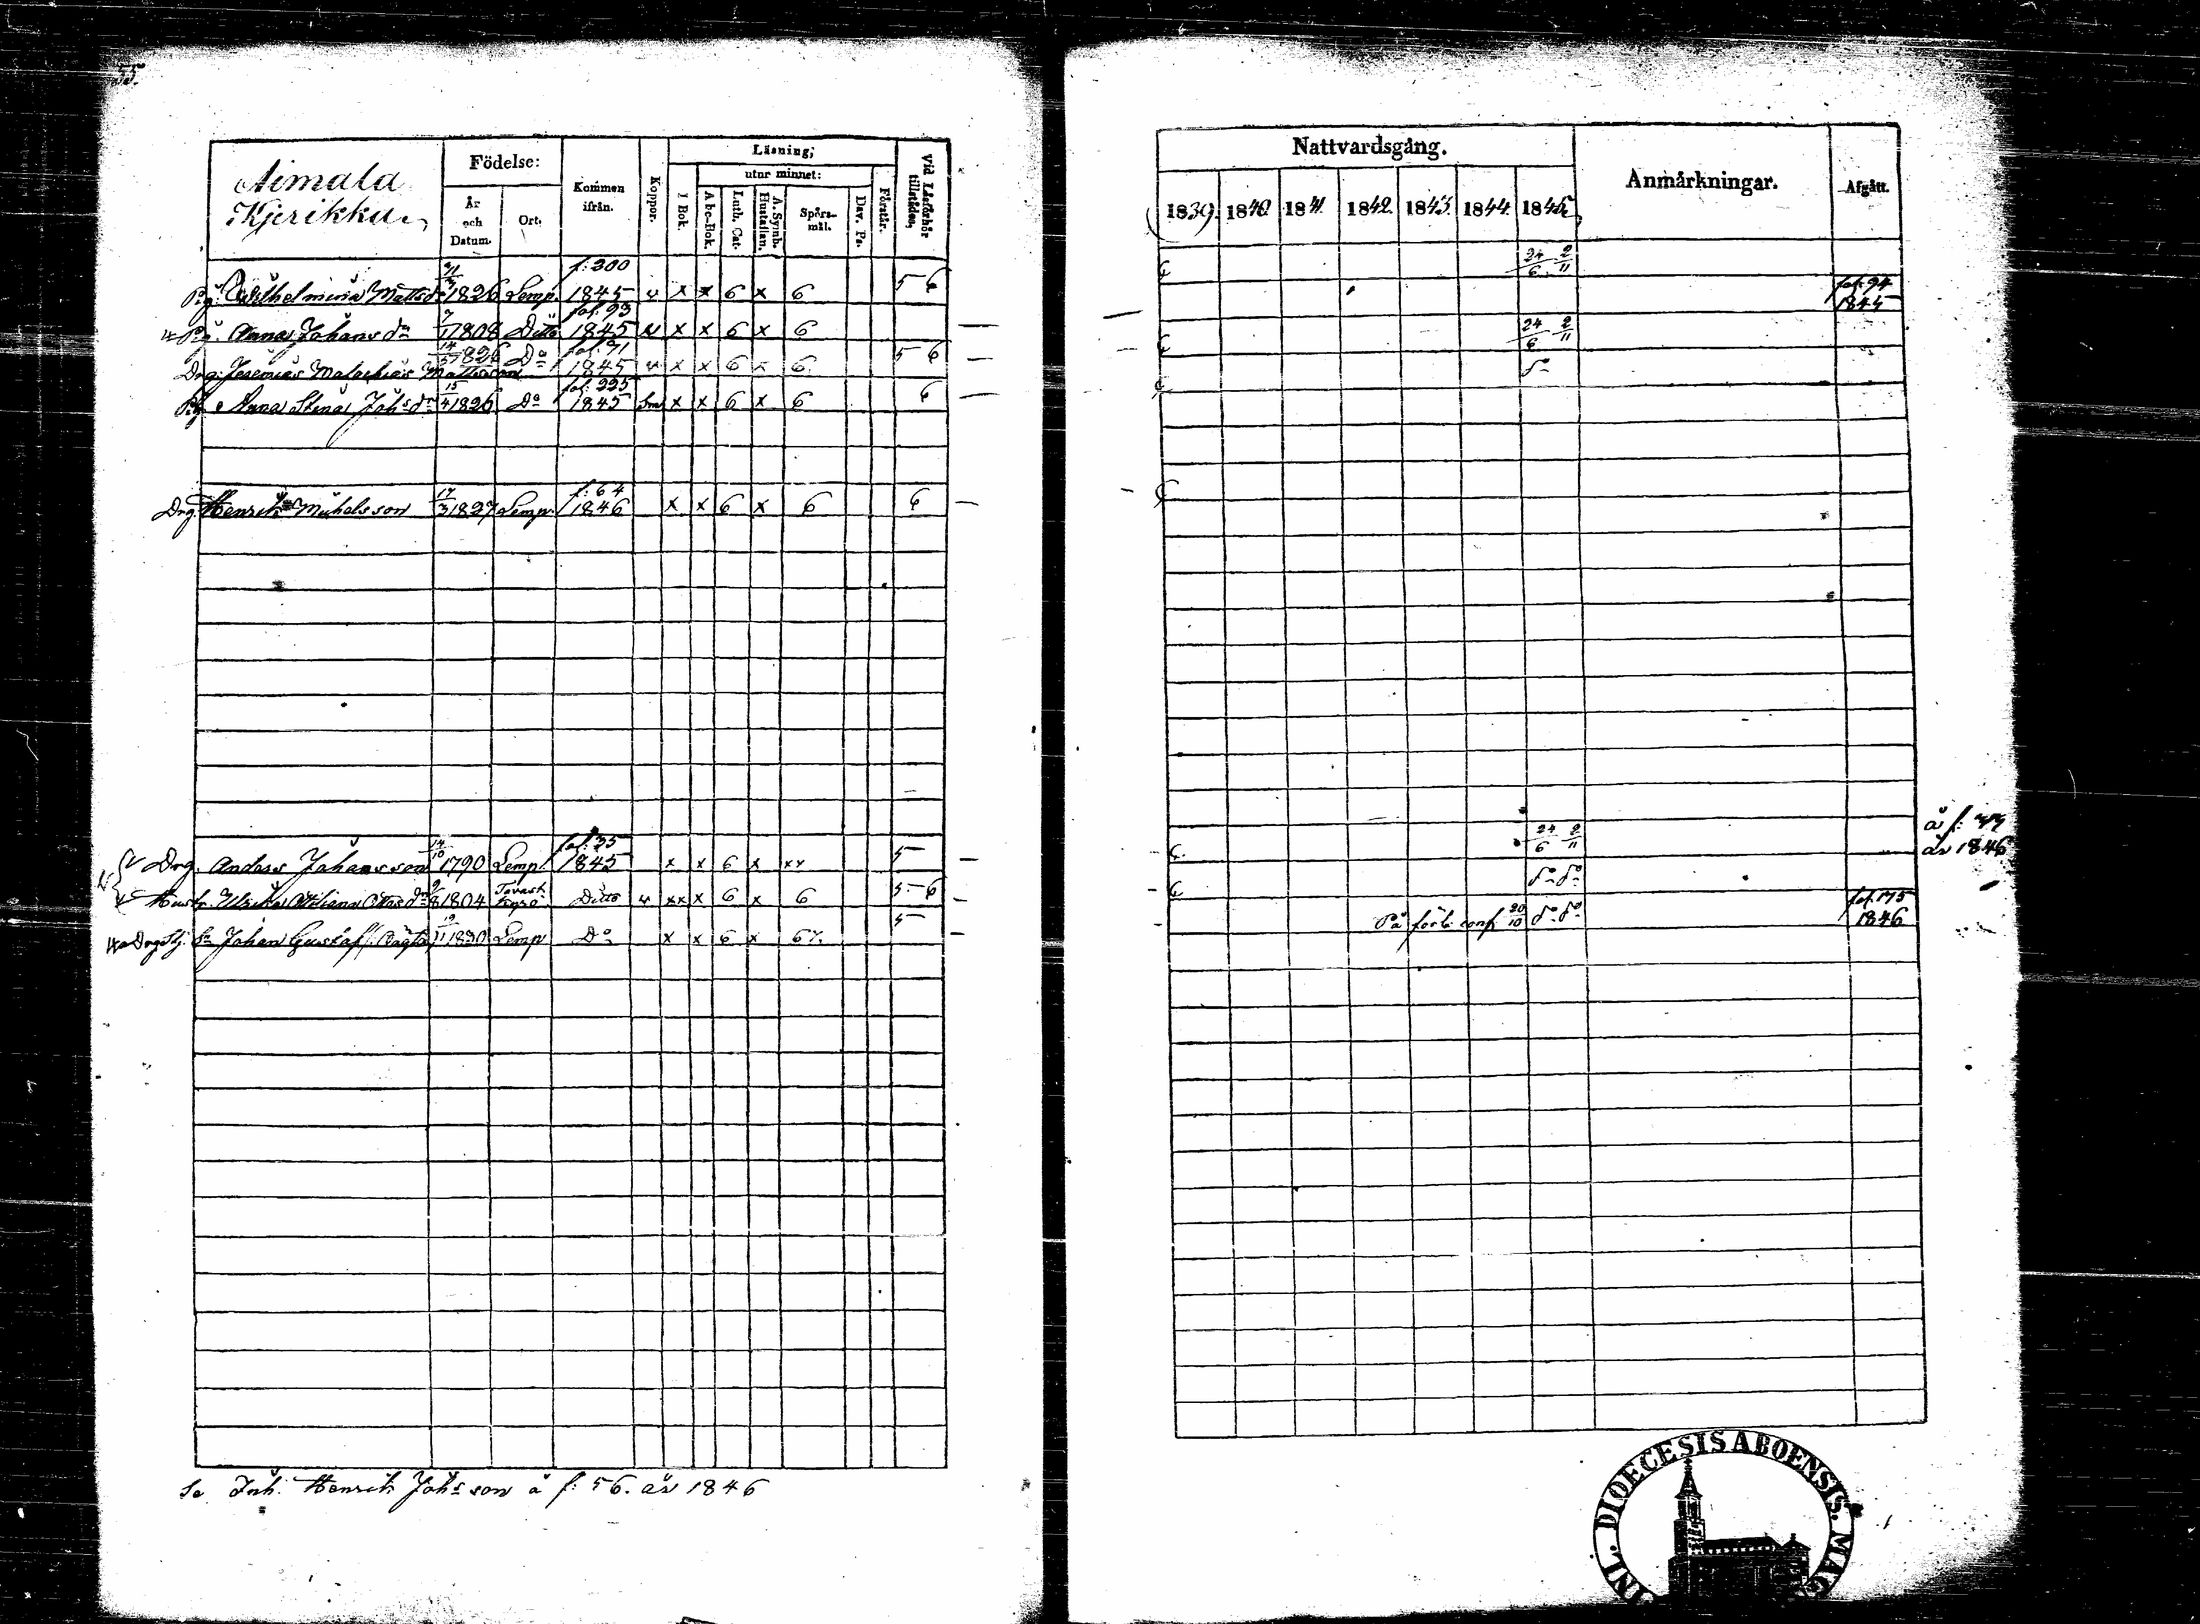 55.
Aimala
Kjerikku
Födelse:
År och Datum.
Ort.
Kommen ifrån.
Koppor.
Läsning;
I Bok.
utur minnet:
Abc-Bok.
Luth. Cat.
A. Symb. Hustaflan.
Spörs-mål.
Dav. Ps.
Förstår.
Vid Läsförhör tillstädes.
f: 300
Pig. Wilhelmina Matts dr 1826 Lemp. 1845 v x x 6 x 6 5 6
fol. 93
Pig. Anna Johans dr 1808 Ditto 1845 v x x 6 x 6
fol. 71
Drg. Jeremias Malachias Mattsson 14/5 1826 Do 1845 v x x 6 x 6 5 6
fol. 225
Pig Anna Stina Johs dr 15/4 1826 Do 1845 x x 6 x 6 6
f: 64
Drg. Henrik Michelsson 17/3 1827 Lemp. 1846 x x 6 x 6 6
fol. 35
Drg. Anders Johansson 14/10 1790 Lemp. 1845 x x 6 x xx 5
Hustr. Ulrika 1804 Tavast Kyro Ditto v xx x 6 x 6 5 6
Johan Gustaf 1830 Lemp Do x x 6 x 5
Se Inh. Henrik Johsson å f: 56. år 1846
Nattvardsgång.
Anmärkningar.
Afgått.
1839. 1840. 1841. 1842. 1843. 1844. 1845.
24/6 2/11
fol. 94
1845
24/6 2/11
do
24/6 2/11
å f: 77
år 1846
do do
På förb. conf. 20/10 do do
fol. 175
1846
DIOECESIS ABOENSIS. MAG